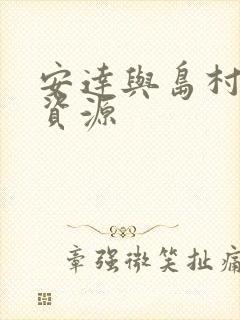 安達與島村
資源
章強微笑扯痛